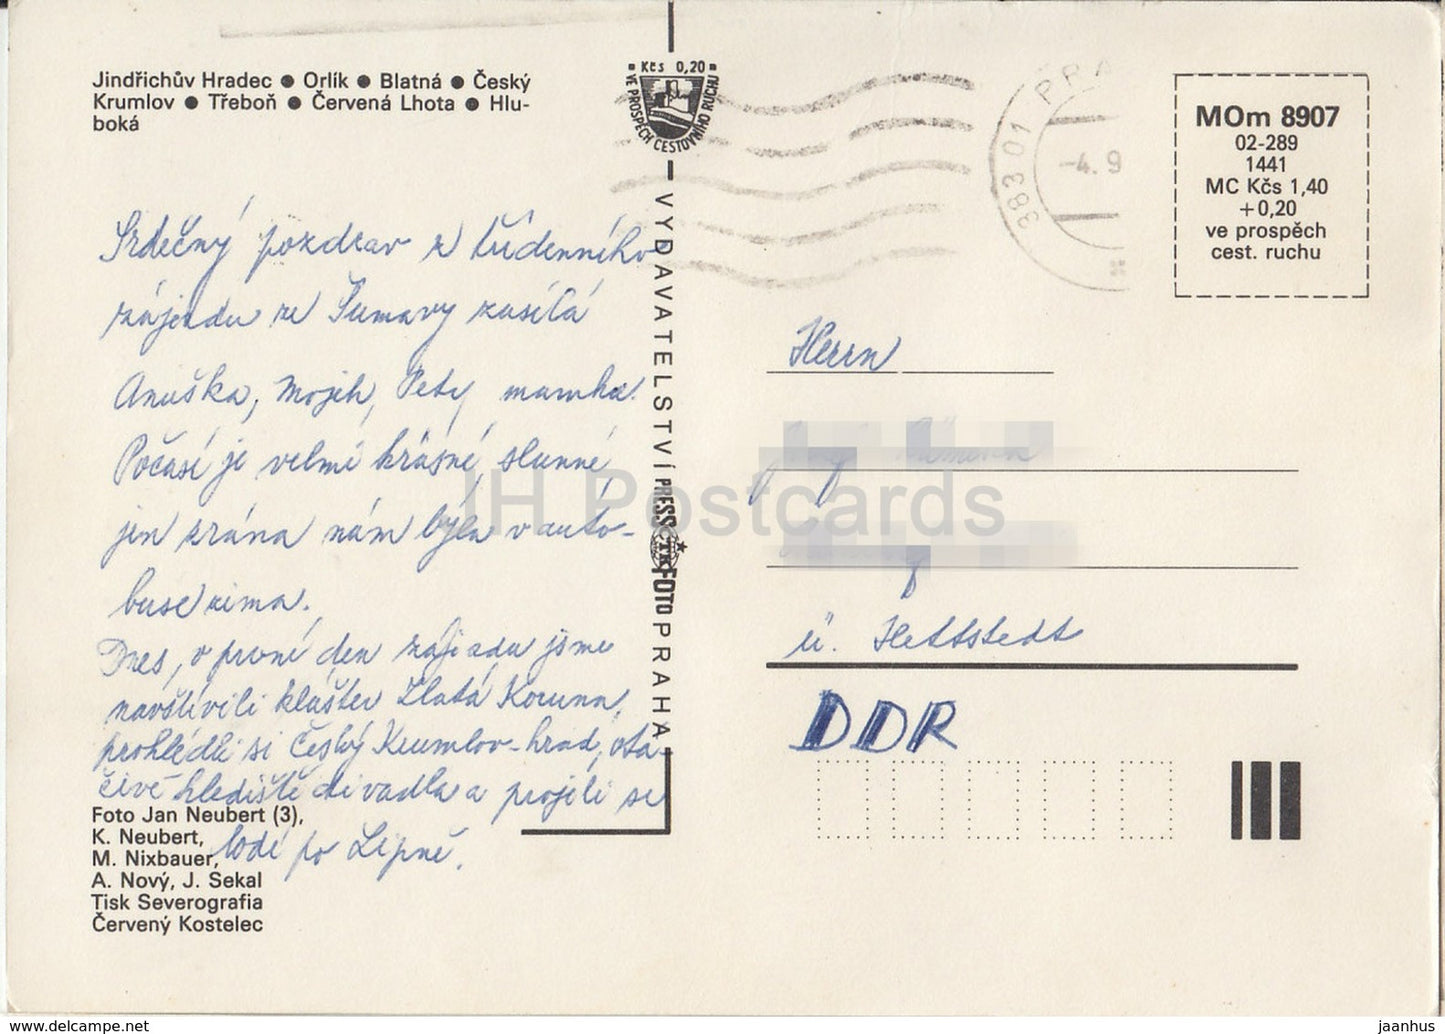 Jindřichův Hradec ● Orlík ● Blatná ● Český
Krumlov ● Třeboň ● Červená Lhota ● Hlu-
boká
Kčs 0,20
VE PROSPĚCH CESTOVNÍHO RUCHU
383 01 PRA
-4. 9
MOm 8907
02-289
1441
MC Kčs 1,40
+0,20
ve prospěch
cest. ruchu
Srdečný pozdrav z týdenního
zájezdu ze Šumavy zasílá
Anuška, Mojih, Pety mamka.
Počasí je velmi krásné, slunné,
jen zrána nám byla v auto-
buse zima.
Dnes, v první den zájezdu jsme
navštívili klášter Zlatá Koruna,
prohlédli si Český Krumlov-hrad, otá-
čivé hlediště divadla a projeli se
lodí po Lipně.
VYDAVATELSTVÍ PRESSFOTO PRAHA
ČTK
Herrn
ü. Hettstedt
DDR
Foto Jan Neubert (3),
K. Neubert,
M. Nixbauer,
A. Nový, J. Sekal
Tisk Severografia
Červený Kostelec
IH Postcards
www.delcampe.net
jaanhus